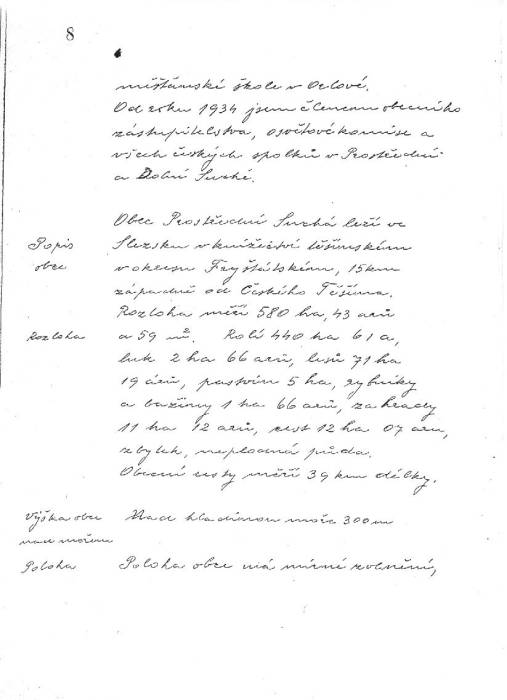 8
měšťanské škole v Orlové.
Od roku 1934 jsem členem obecního
zastupitelstva, osvětové komise a
všech českých spolků v Prostřední
a Dolní Suché.
Obec Prostřední Suchá leží ve
Popis
Slezsku v knížectví těšínském
obce
v okresu Fryštátském, 15 km
západně od Českého Těšína.
Rozloha měří 580 ha, 43 arů
Rozloha
a 59 m². Rolí 440 ha 61 a,
luk 2 ha 66 arů, lesů 71 ha
19 árů, pastvin 5 ha, rybníky
a bažiny 1 ha 66 arů, zahrady
11 ha 12 arů, cest 12 ha 07 arů,
zbytek, neplodná půda.
Obecní cesty měří 39 km délky.
Výška obce
Nad hladinou moře 300 m
nad mořem
Poloha
Poloha obce má mírné zvlnění,